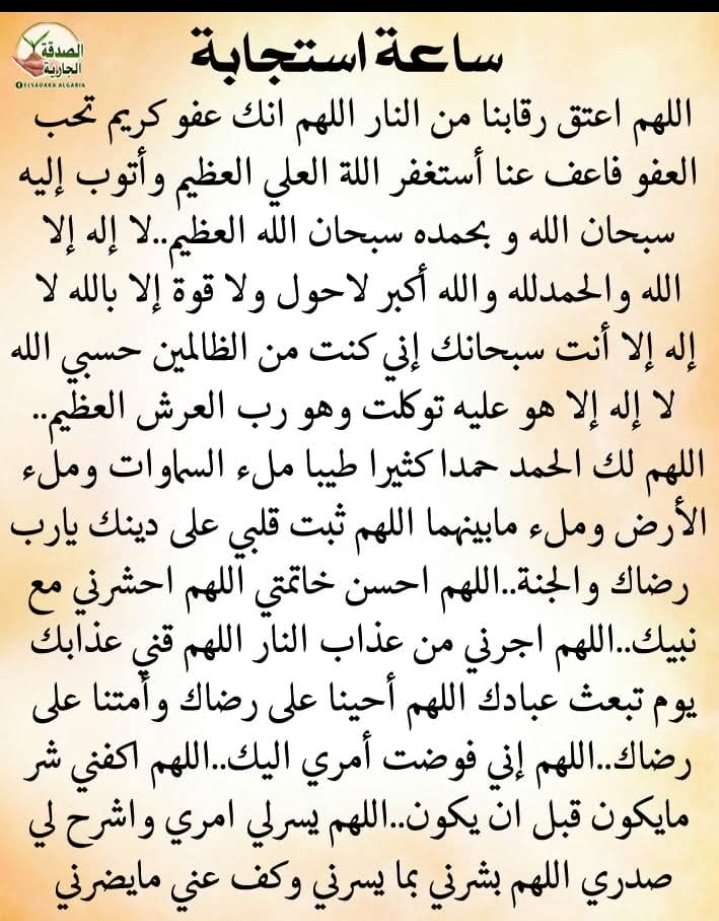 الصدقة
الجارية
ELSADAKA ALGARIA
ساعة استجابة
اللهم اعتق رقابنا من النار اللهم انك عفو كريم تحب
العفو فاعف عنا أستغفر اللة العلي العظيم وأتوب إليه
سبحان الله و بحمده سبحان الله العظيم..لا إله إلا
الله والحمدلله والله أكبر لاحول ولا قوة إلا بالله لا
إله إلا أنت سبحانك إني كنت من الظالمين حسبي الله
لا إله إلا هو عليه توكلت وهو رب العرش العظيم..
اللهم لك الحمد حمدا كثيرا طيبا ملء السماوات وملء
الأرض وملء مابينهما اللهم ثبت قلبي على دينك يارب
رضاك والجنة..اللهم احسن خاتمتي اللهم احشرني مع
نبيك..اللهم اجرني من عذاب النار اللهم قني عذابك
يوم تبعث عبادك اللهم أحينا على رضاك وأمتنا على
رضاك..اللهم إني فوضت أمري اليك..اللهم اكفني شر
مايكون قبل ان يكون..اللهم يسرلي امري واشرح لي
صدري اللهم بشرني بما يسرني وكف عني مايضرني